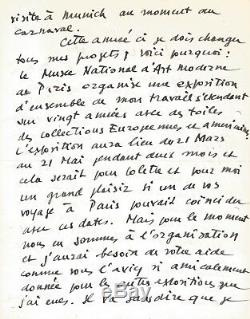 visite à Munich au moment du
carnaval.
Cette année ci je dois changer
tous mes projets, voici pourquoi:
le Musée National d'Art Moderne
de Paris organise une exposition
d'ensemble de mon travail s'étendant
sur vingt années avec des toiles
des collections Européennes et américaines
L'exposition aura lieu du 21 Mars
au 21 Mai pendant deux mois et
cela serait pour Lolette et pour moi
un grand plaisir si un de vos
voyage à Paris pouvait coïncider
avec ces dates. Mais pour le moment
nous en sommes à l'organisation
et j'aurai besoin de votre aide
comme vous l'avez si amicalement
donnée pour les autres expositions que
j'ai eues. Il va sans dire que je